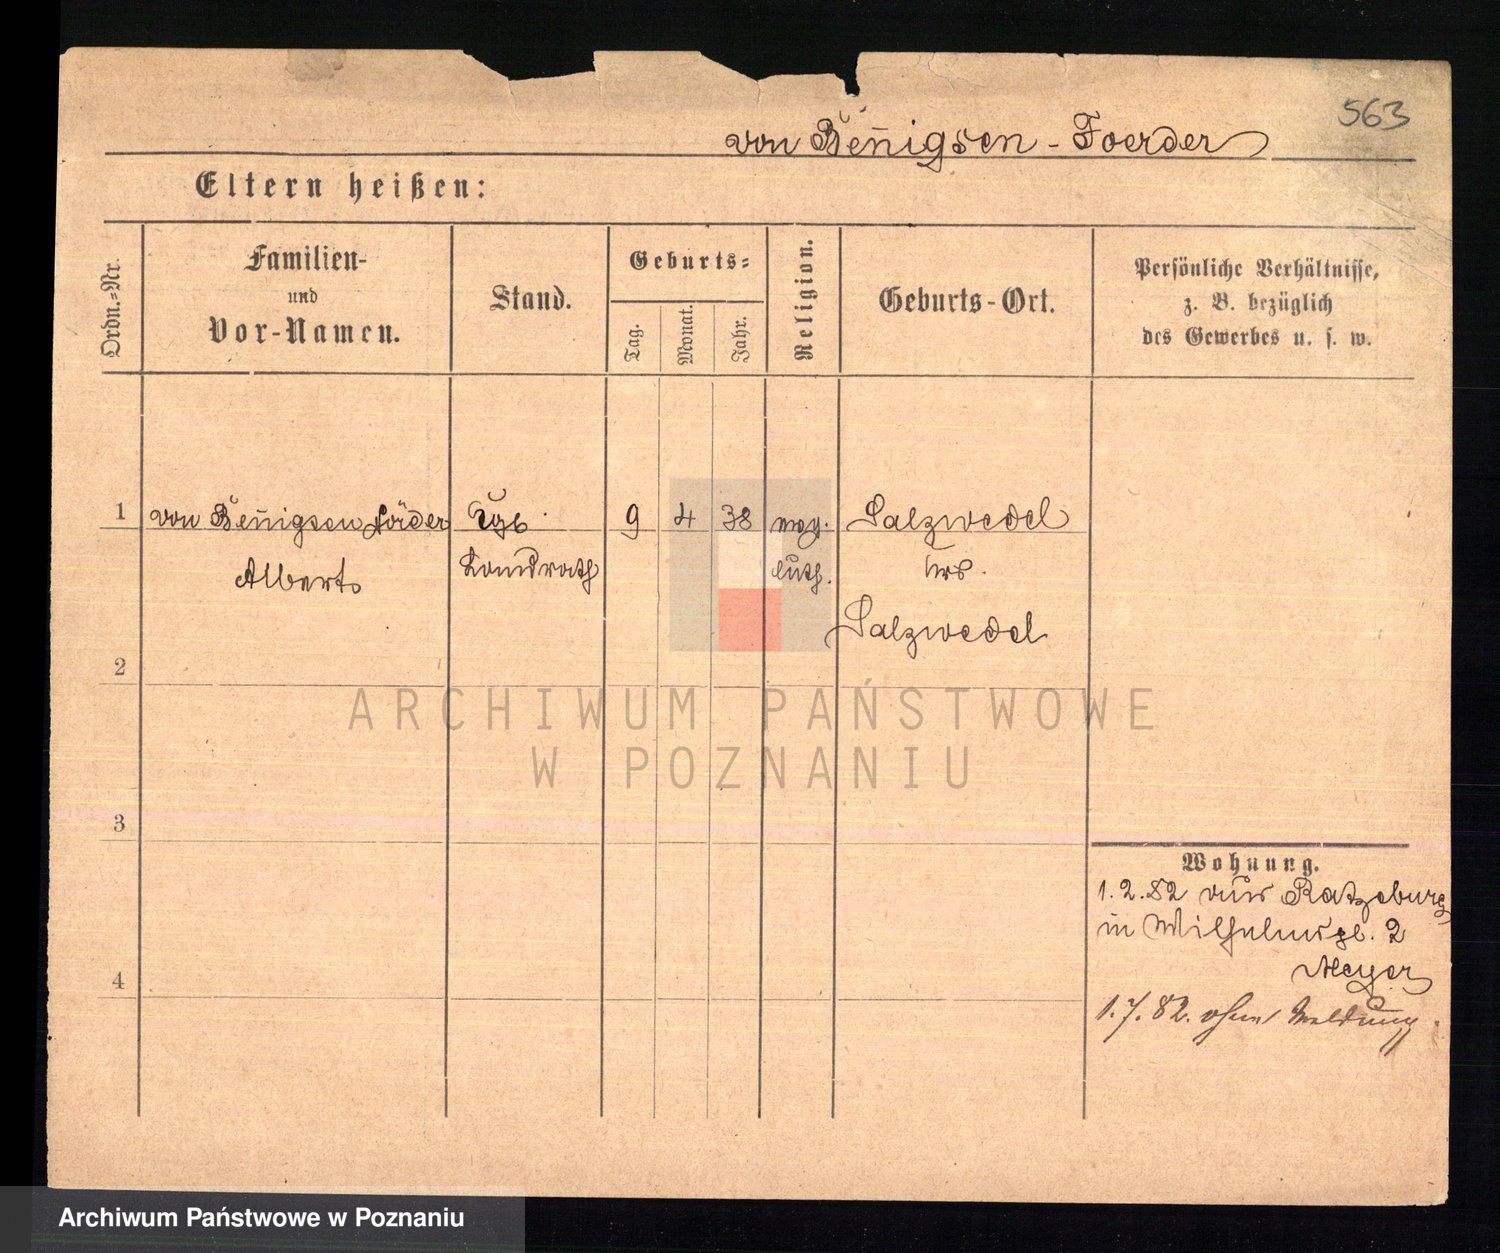 563
von Bennigsen-Foerder
Eltern heißen:
Ordn.-Nr.
Familien-
und
Vor-Namen.
Stand.
Geburts-
Tag.
Monat.
Jahr.
Religion.
Geburts-Ort.
Persönliche Verhältnisse,
z. B. bezüglich
des Gewerbes u. s. w.
1
von Bennigsen förder
9
4
38
Salzwedel
Albert
Landrath
luth.
Krs.
Salzwedel
2
ARCHIWUM PAŃSTWOWE
W POZNANIU
3
Wohnung.
1.2.82 aus Ratzeburg
in Wilhelmspl. 2
Meyer
4
1.7.82. ohne Meldung
Archiwum Państwowe w Poznaniu